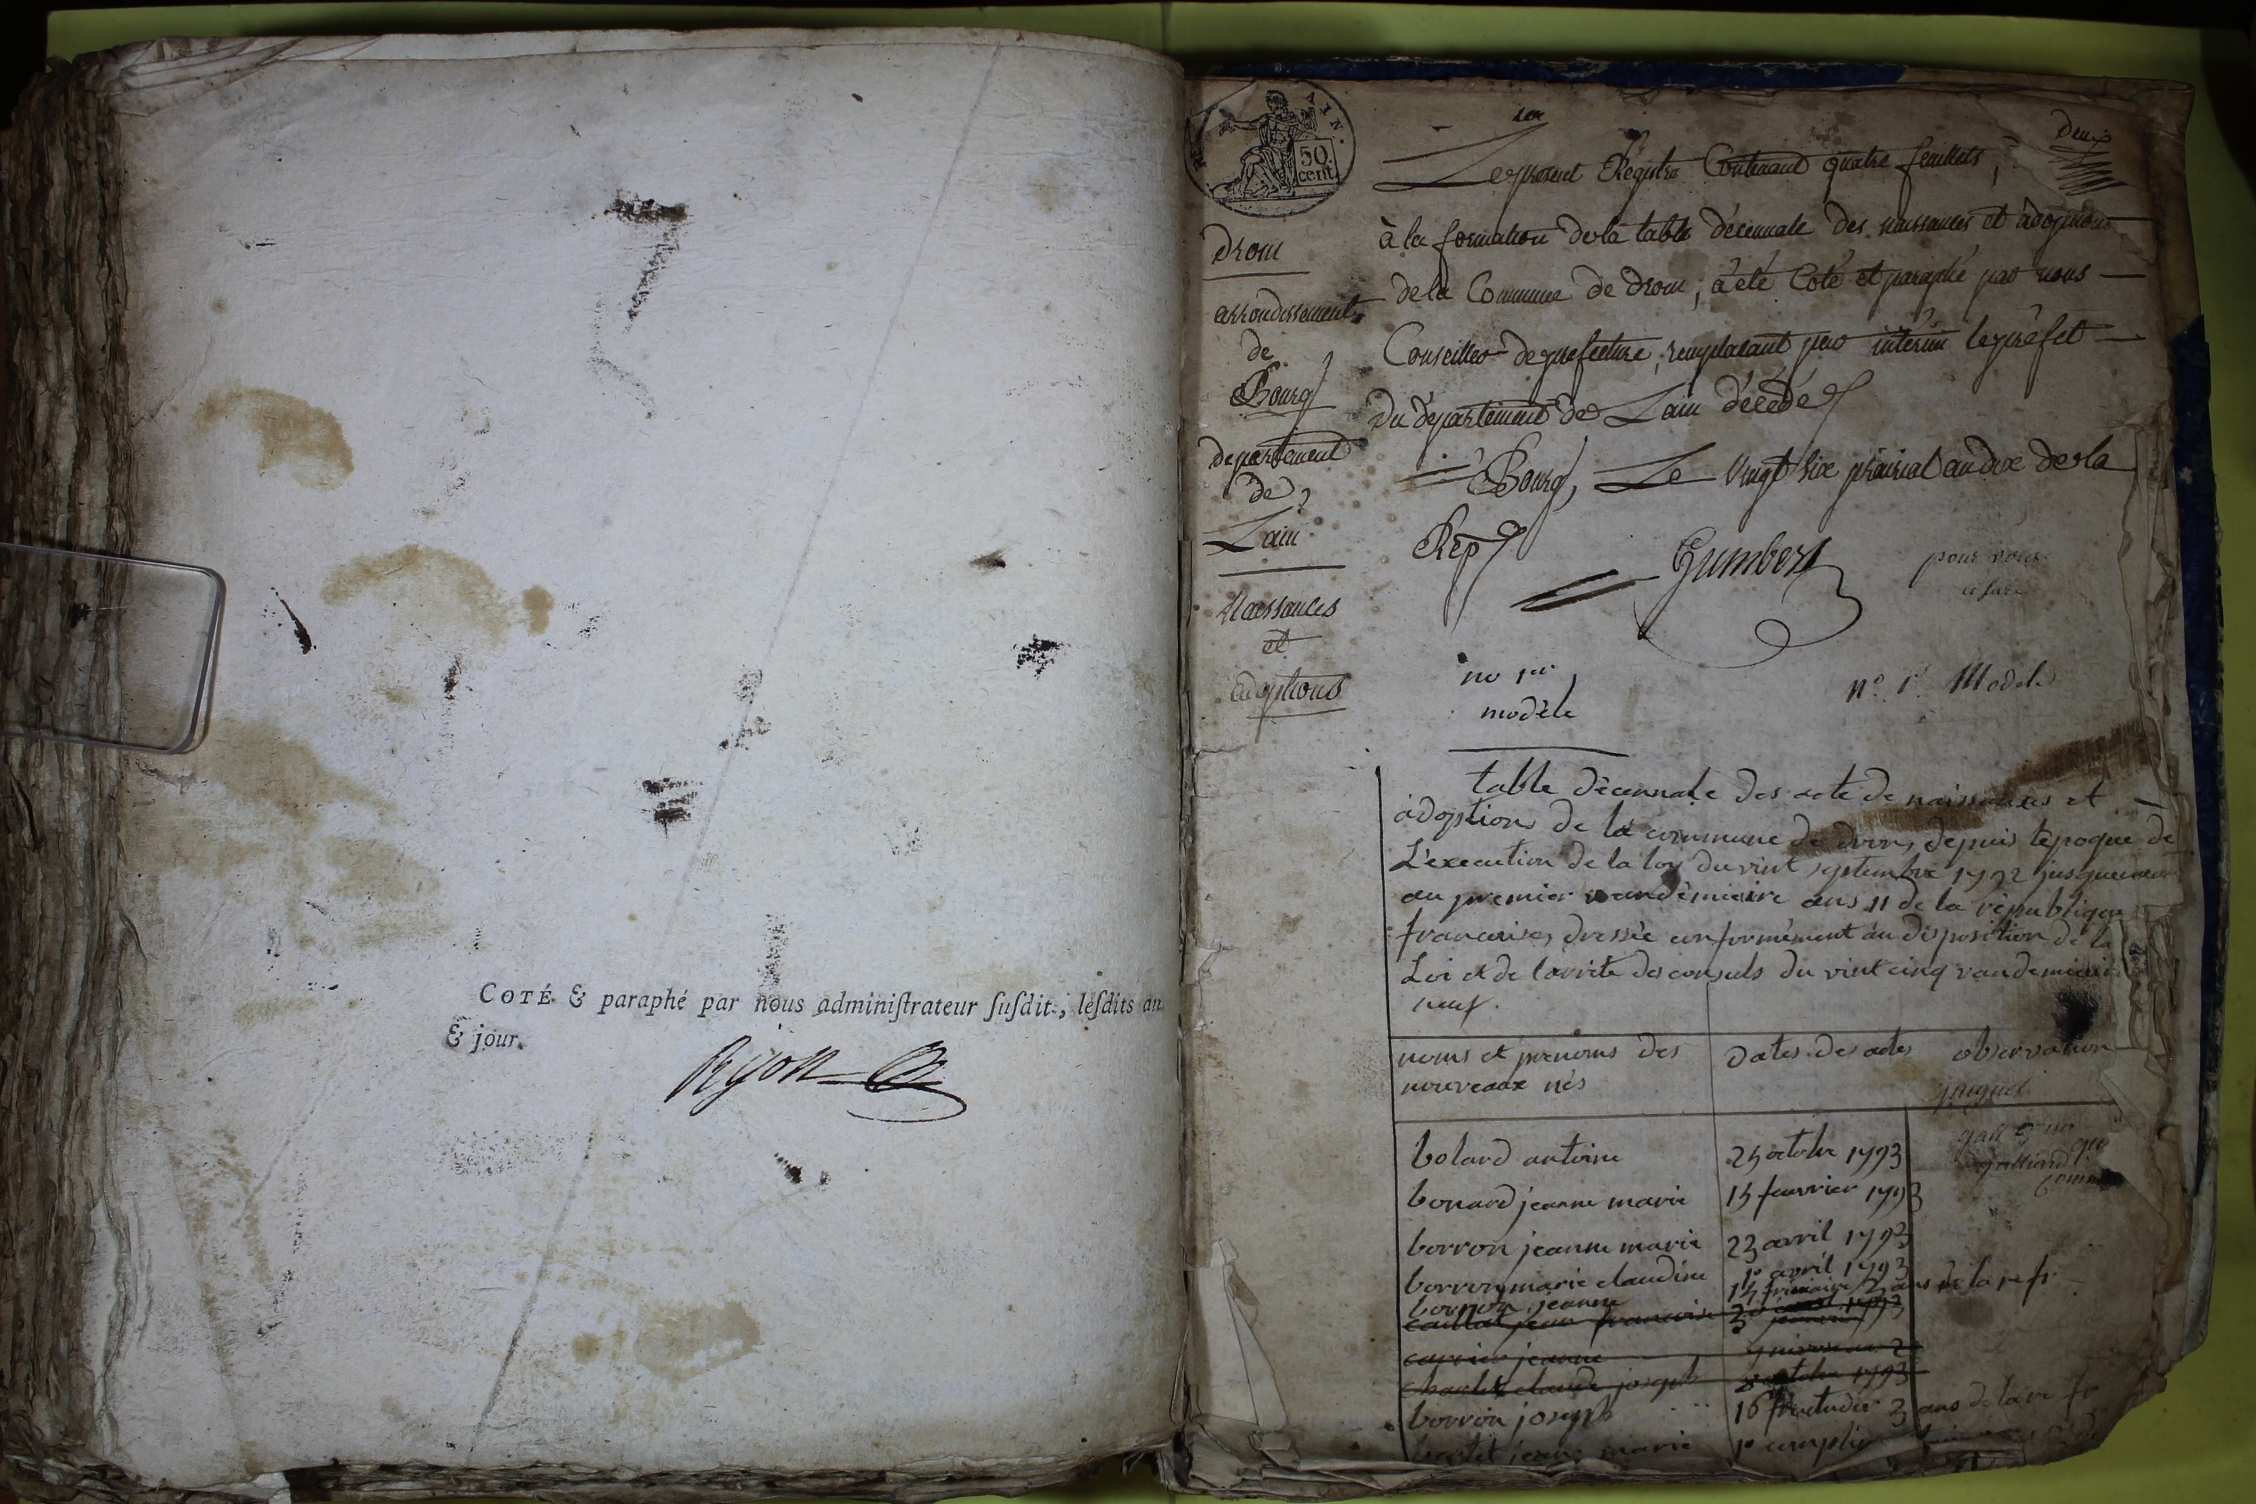 COTÉ & paraphé par nous adminiſtrateur ſuſdit, leſdits an
& jour.
AIN.
50
cent
deux
Le present Registre Contenant quatre feuillets,
à la formation de la table décennale des naissances et adoptions
de la Commune de Drom, a été Coté et paraphé par nous
Conseiller de prefecture, remplacant par intérim le préfet
du département de Lain décédé
Bourg, Le Vingt six prairial an dix de la
Rep
Gumbert
pour
Drom
arrondissement
de
Bourg
département
de
Lain
Naissances
et
adoptions
no 1er
modèle
n° 1er Modele
table décennale des acte de naissances et
adoptions de la commune de drom, depuis l'epoque de
L'execution de la loy du vint septembre 1792 jusque
au premier vandemiaire ans 11 de la republique
francaise, dressée conformément au disposition de la
Loi et de larrite des consuls du vint cinq vandemiair
neuf.
noms et prenoms des
nouveaux nés
dates des actes
observation
bolard antoine 25 octobre 1793
bonard jeanne marie 15 feuvrier 1793
borron jeanne marie 23 avril 1793
borron marie claudine 1er avril 1793
borron jeanne 15 frimaire 2 ans de la re fr
caillat jean francoise
carrier jeanne
charlet claude joseph octobre 1793
borron joseph 16 fructidor 3 ans de la re fr
jeanne marie 1er